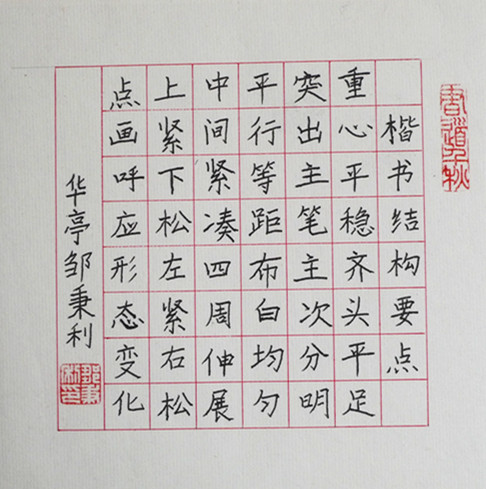 楷书结构要点
重心平稳齐头平足
突出主笔主次分明
平行等距布白均匀
中间紧凑四周伸展
上紧下松左紧右松
点画呼应形态变化
华亭邹秉利